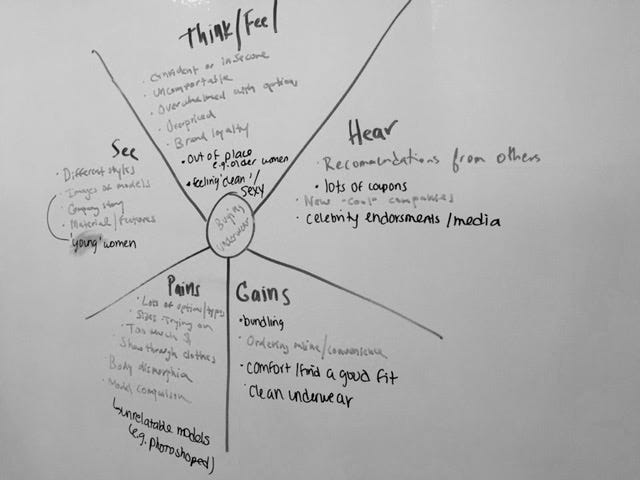 Think/Feel
• Confident or insecure
• Uncomfortable
• Overwhelmed with options
• Overpriced
• Brand loyalty
• Out of place
e.g. older women
• feeling "clean"/
sexy
See
• Different styles
• Images of models
• Company story
• Material/Features
"young" women
Hear
• Recomendations from others
• lots of coupons
• New "cool" companies
• celebrity endorsments/media
Buying
Underwear
Pains
• Lots of options/types
• Sizes - Trying on
• Too much $
• Show through clothes
• Body dismorphia
• Model comparison
unrelatable models
(e.g. photoshoped)
Gains
• bundling
• Ordering online/convenience
• comfort/find a good fit
• clean underwear